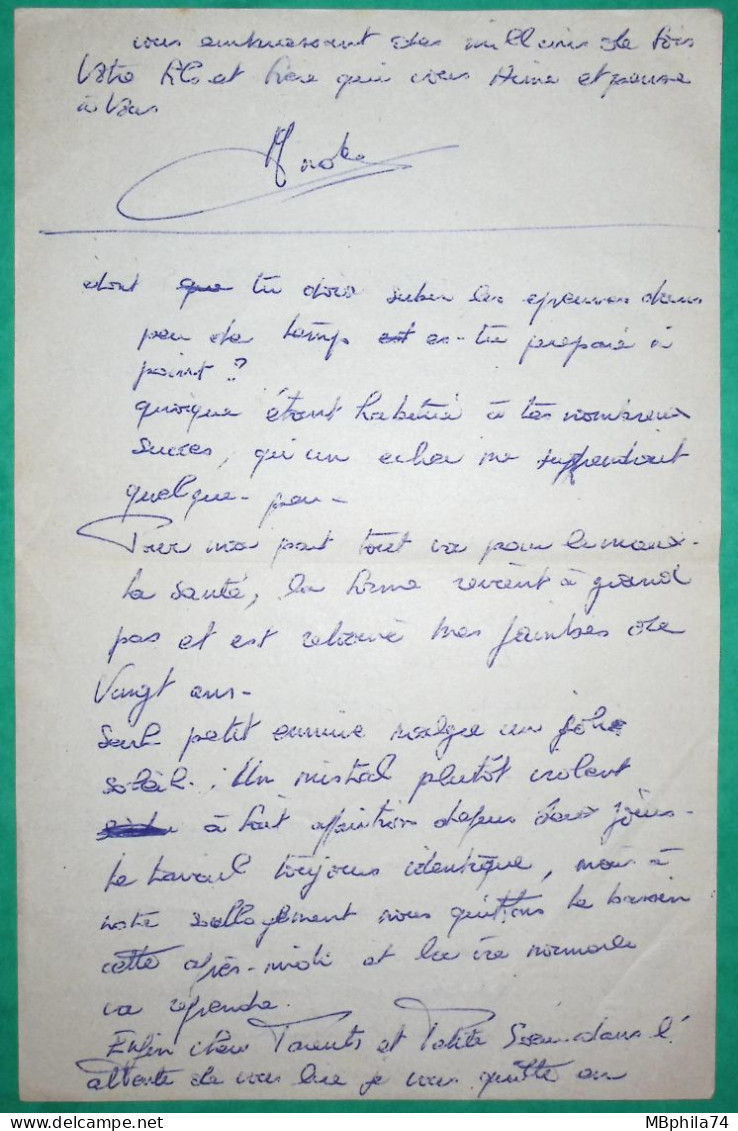 vous embrassant des milliers de fois
Votre fils et frère qui vous Aime et pense
à Vous
dont que tu dois subir les épreuves dans
peu de temps est es-tu préparé à
point?
quoique étant habitué à tes nombreux
succès, qu'un echec me
quelque-peu-
Pour ma part tout va pour le mieux-
La santé, la forme revient à grand
pas et est retrouvé mes jambes de
Vingt ans-
Seul petit ennuie malgré un joli
soleil. Un mistral plutôt violent
à fait apparition depuis deux jours-
Le travail toujours identique, mais à
notre soulagement nous quittons le bassin
cette après-midi et la vie normale
va reprendre.
Enfin chers Parents et Petite Soeur dans l'
attente de vous lire je vous quitte en
MBphila74